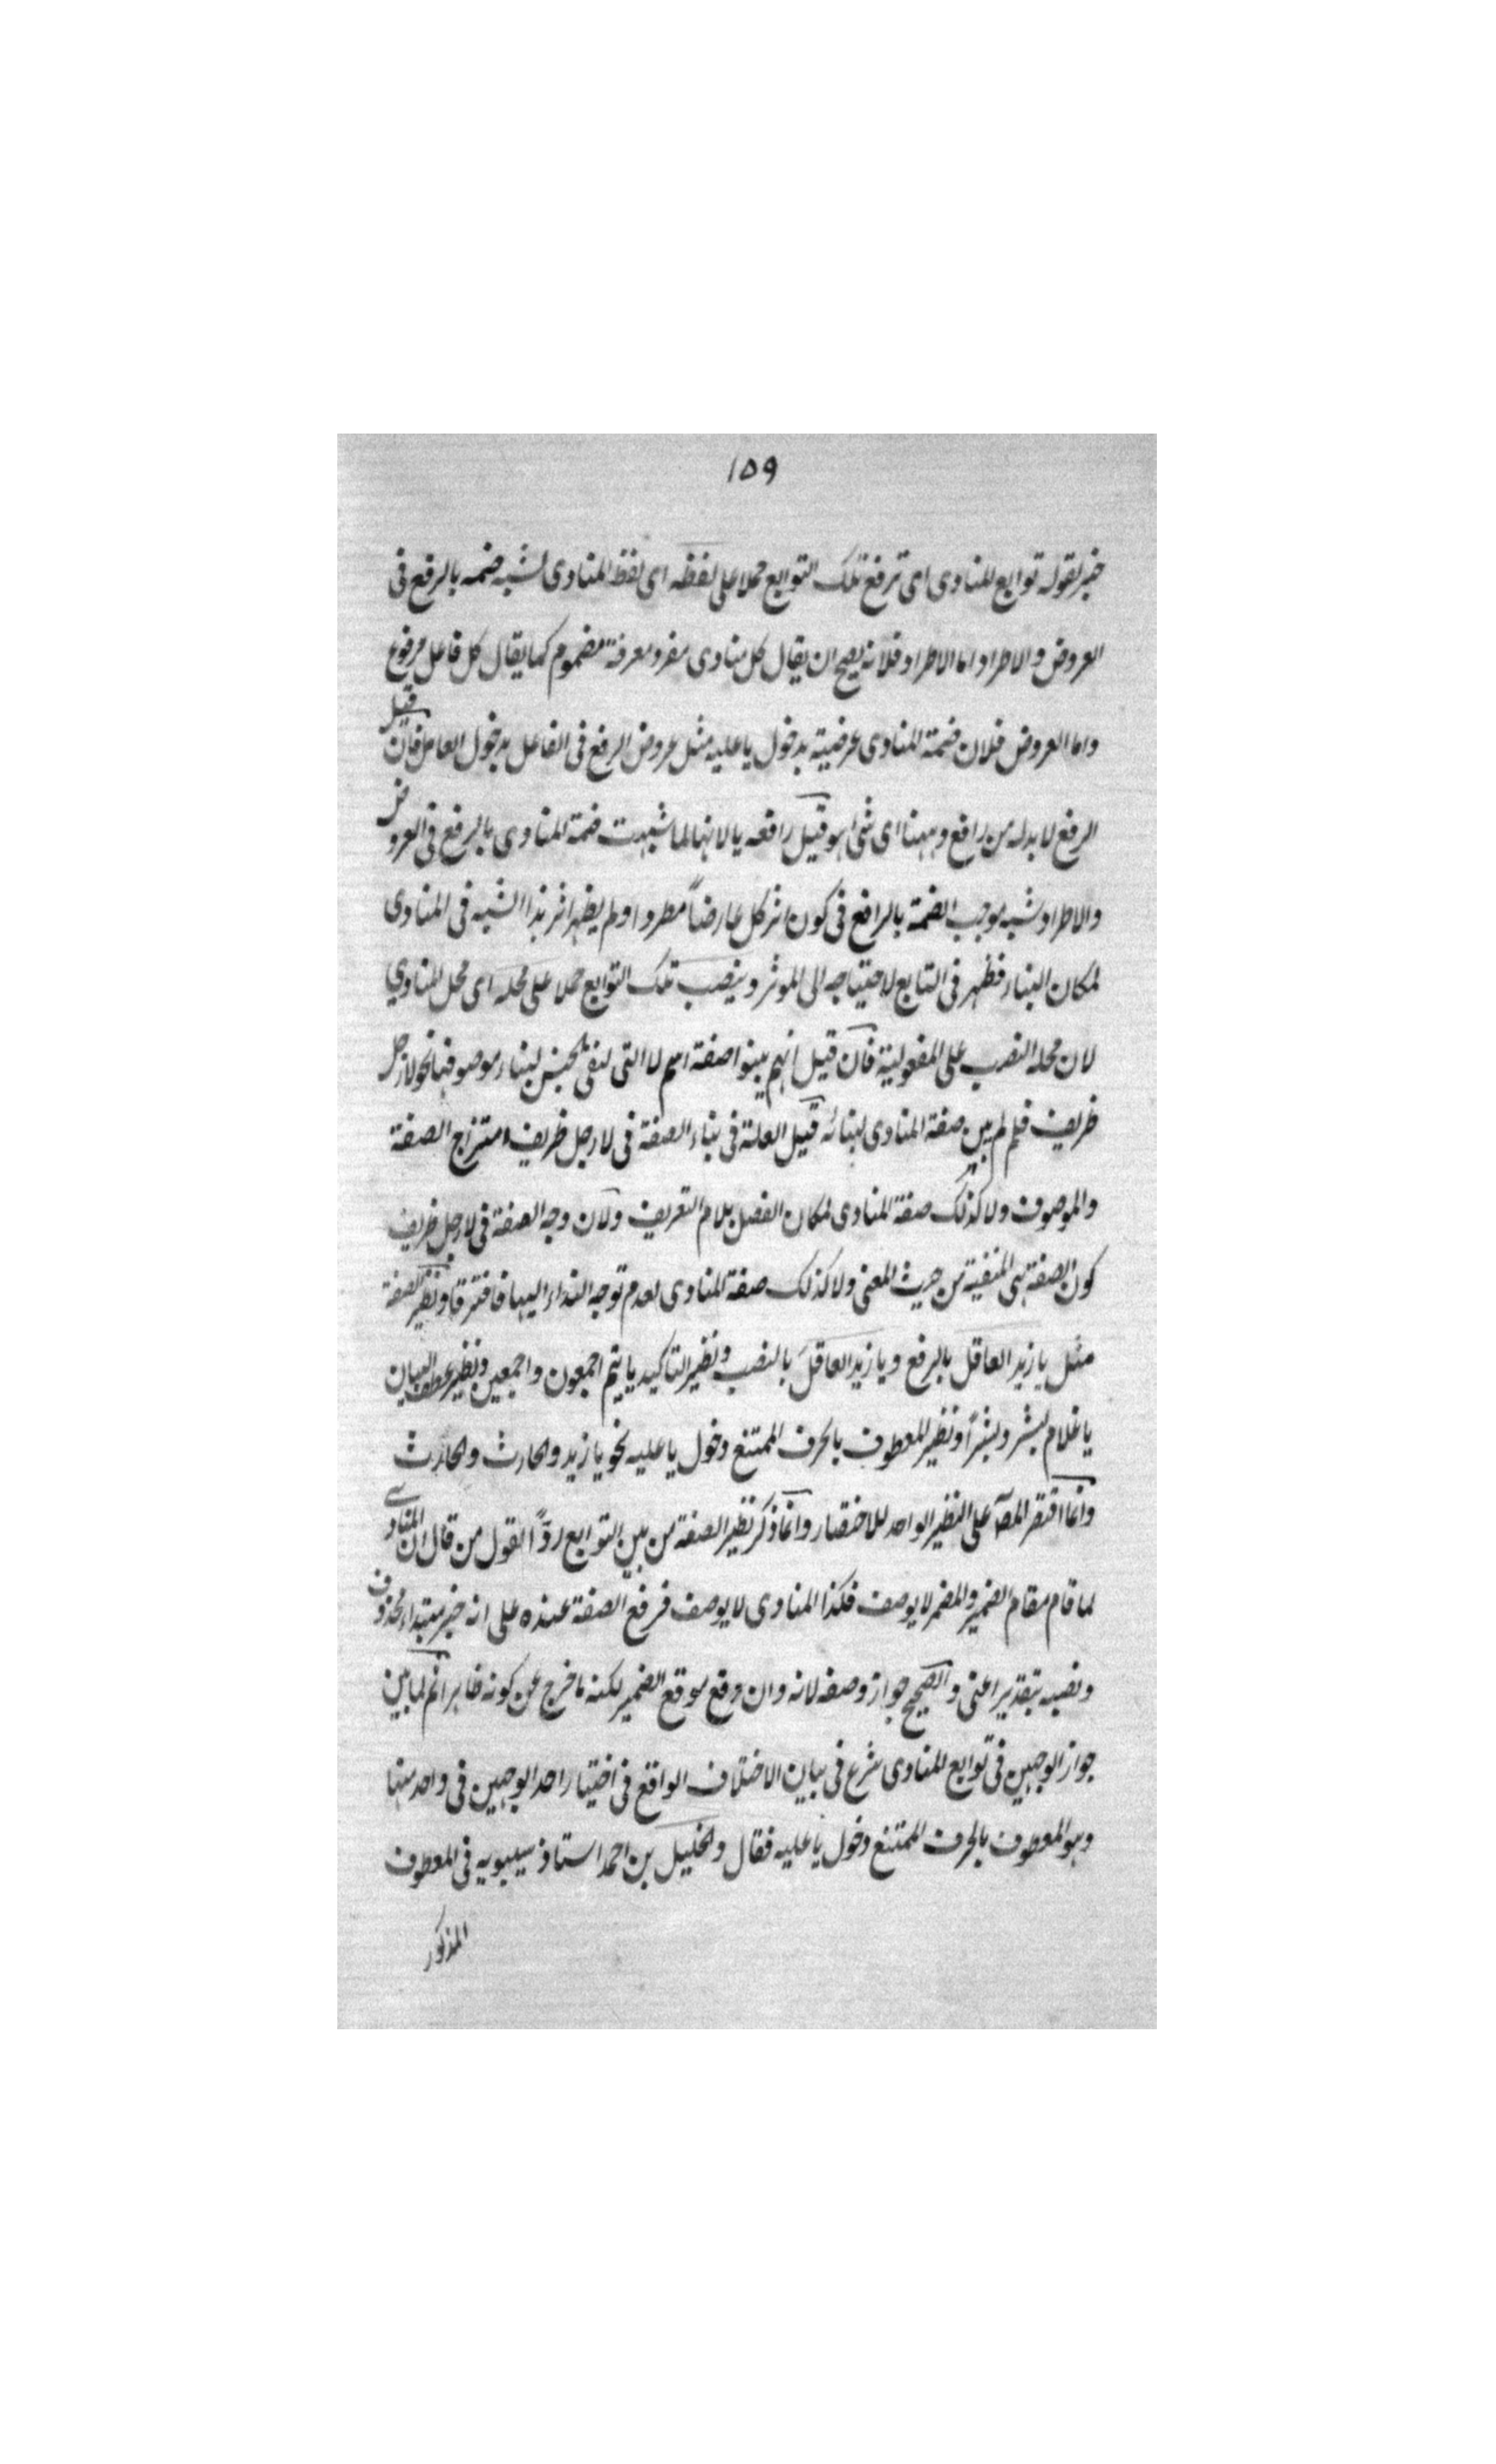 ١٥٩
خبر لقوله توابع المنادى اى ترفع تلك التوابع حملا على لفظه اى لفظ المنادى لشبه ضمه بالرفع فى
العروض والاطراد اما الاطراد فلانه يصح ان يقال كل منادى مفرد معرفة مضموم كما يقال كل فاعل مرفوع
واما العروض فلان ضمة المنادى عرضية بدخول يا عليه مثل عروض الرفع فى الفاعل بدخول العامل فان قيل
الرفع لا بد له من رافع وههنا اى شئ هو قيل رافعه يا لانها لما شبهت ضمة المنادى بالرفع فى العروض
والاطراد شبه موجب الضمة بالرافع فى كون اثر كل عارضاً مطردا ولم يظهر اثر هذا الشبه فى المنادى
لمكان البناء فظهر فى التابع لاحتياجه الى الموثر وينصب تلك التوابع حملا على محله اى محل المنادي
لان محله النصب على المفعولية فان قيل انهم يبنوا صفة اسم لا التى لنفى الجنس لبناء موصوفها نحو لا رجل
ظريف فلم لم يبن صفة المنادى لبنائه قيل العلة فى بناء الصفة فى لا رجل ظريف امتزاج الصفة
والموصوف ولا كذلك صفة المنادى لمكان الفصل بلام التعريف ولان وجه الصفة فى لا رجل ظريف
كون الصفة هى المنفية من حيث المعنى ولا كذلك صفة المنادى لعدم توجه النداء اليها فافترقا ونظير الصفة
مثل يا زيد العاقل بالرفع ويا زيد العاقلَ بالنصب ونظير التاكيد يا تيم اجمعون واجمعين ونظير عطف البيان
يا غلام بشر وبشراً ونظير المعطوف بالحرف الممتنع دخول يا عليه نحو يا زيد والحارث والحارث
وانما اقتصر المصـ على النظير الواحد للاختصار وانما ذكر نظير الصفة من بين التوابع ردًّا لقول من قال ان المنادى
لما قام مقام الضمير والمضمر لا يوصف فكذا المنادى لا يوصف فرفع الصفة عنده على انه خبر مبتداء محذوف
ونصبه بتقدير اعنى والصحيح جواز وصفه لانه وان وقع موقع الضمير لكنه ما خرج عن كونه ظاهرا ثم لما بين
جواز الوجهين فى توابع المنادى شرع فى بيان الاختلاف الواقع فى اختيار احد الوجهين فى واحد منها
وهو المعطوف بالحرف الممتنع دخول يا عليه فقال والخليل بن احمد استاذ سيبويه فى المعطوف
المذكور